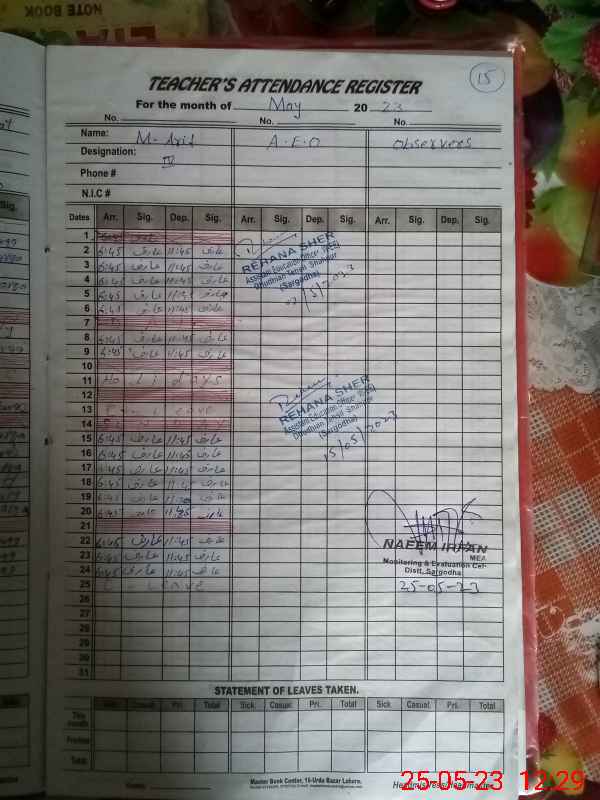 NOTE BOOK
15
TEACHER'S ATTENDANCE REGISTER
For the month of May 2023
No. No. No.
Name: M. Arif A.E.O observers
Designation:
Phone #
N.I.C #
Dates Arr. Sig. Dep. Sig. Arr. Sig. Dep. Sig. Arr. Sig. Dep. Sig.
1
2 6:45 عارف 11:45 عارف
3 6:45 عارف 11:45 عارف
4 6:45 عارف 11:45 عارف
5 6:45 عارف 11:45 عارف
6 6:45 عارف 11:45 عارف
7
8 6:45 عارف 11:45 عارف
9 6:45 عارف 11:45 عارف
10
11 Holidays
12
13 leave
14
15 6:45 عارف 11:45 عارف
16 6:45 عارف 11:45 عارف
17 6:45 عارف 11:45 عارف
18 6:45 عارف 11:45 عارف
19 6:45 عارف
20 6:45 عارف 11:45 عارف
21
22 6:45 عارف 11:45 عارف
23 6:45 عارف 11:45 عارف
24 6:45 عارف 11:45 عارف
25 leave
26
27
28
29
30
31
REHANA SHER
Assistant Education Officer (W-EE)
Tehsil Shahpur
(Sargodha)
/5/2023
REHANA SHER
Assistant Education Officer (W-EE)
Tehsil Shahpur
(Sargodha)
15/05/2023
NAEEM IRFAN
MEA
Monitoring & Evaluation Cell
Distt. Sargodha
25-05-23
STATEMENT OF LEAVES TAKEN.
Sick Casual Pri. Total Sick Casual. Pri. Total Sick Casual. Pri. Total
This month
Previous
Total:
Master Book Center, 15-Urdu Bazar Lahore.
25-05-23 12:29